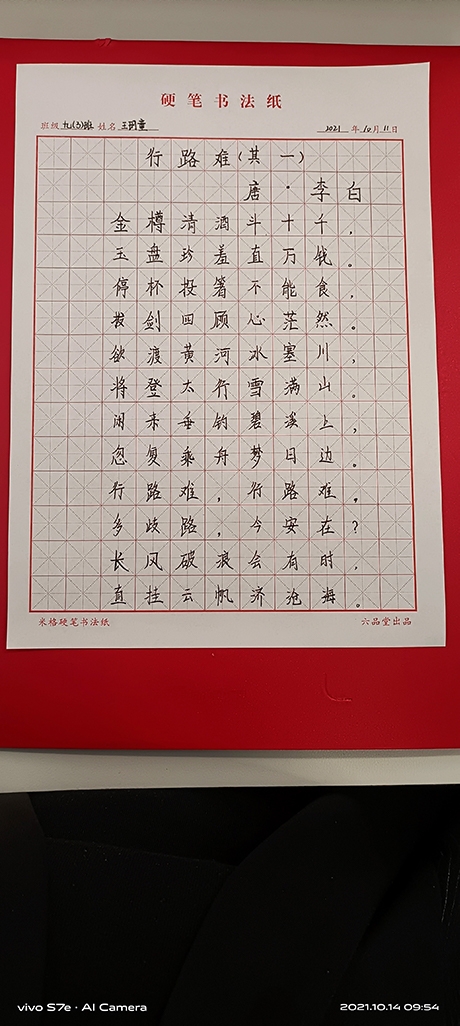 硬笔书法纸
班级 九(3)班 姓名 王玥童 2021 年 10 月 11 日
行路难(其一)
唐·李白
金樽清酒斗十千,
玉盘珍羞直万钱。
停杯投箸不能食,
拔剑四顾心茫然。
欲渡黄河冰塞川,
将登太行雪满山。
闲来垂钓碧溪上,
忽复乘舟梦日边。
行路难,行路难,
多歧路,今安在?
长风破浪会有时,
直挂云帆济沧海。
米格硬笔书法纸 六品堂出品
vivo S7e · AI Camera 2021.10.14 09:54